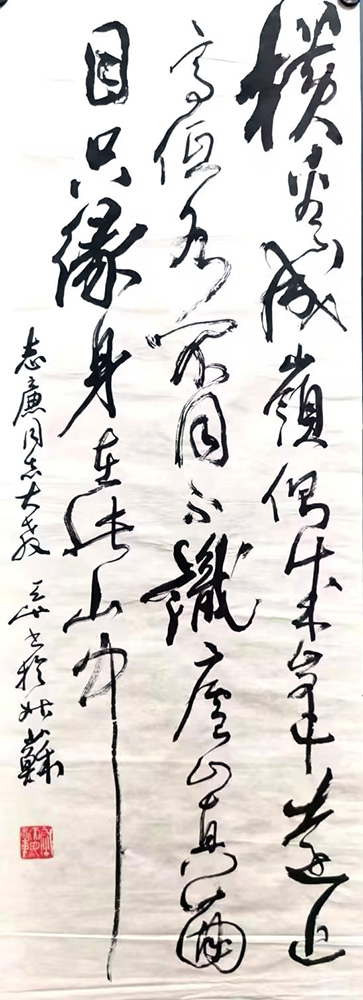 橫看成嶺側成峯遠近
高低各不同不識廬山真面
目只緣身在此山中
志廉同志大教 書於姑蘇